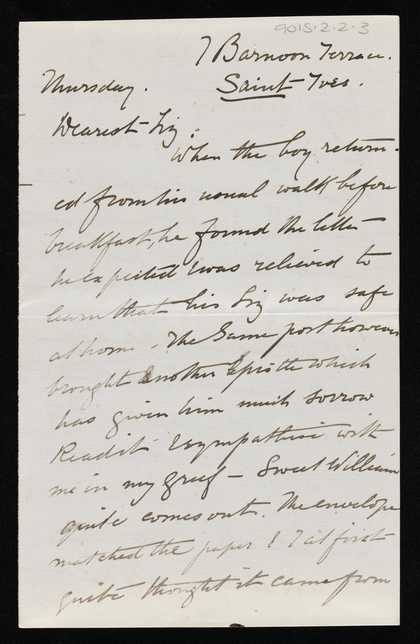 9015.2.2.3
7 Barnoon Terrace.
Saint Ives.
Thursday.
Dearest Liz.
When the boy return-
ed from his usual walk before
breakfast, he found the letter
he expected & was relieved to
learn that his Liz was safe
at home. The same post however
brought another Epistle which
has given him much sorrow
Read it & sympathise with
me in my grief - Sweet William
quite comes out. The envelope
matched the paper & I at first
quite thought it came from